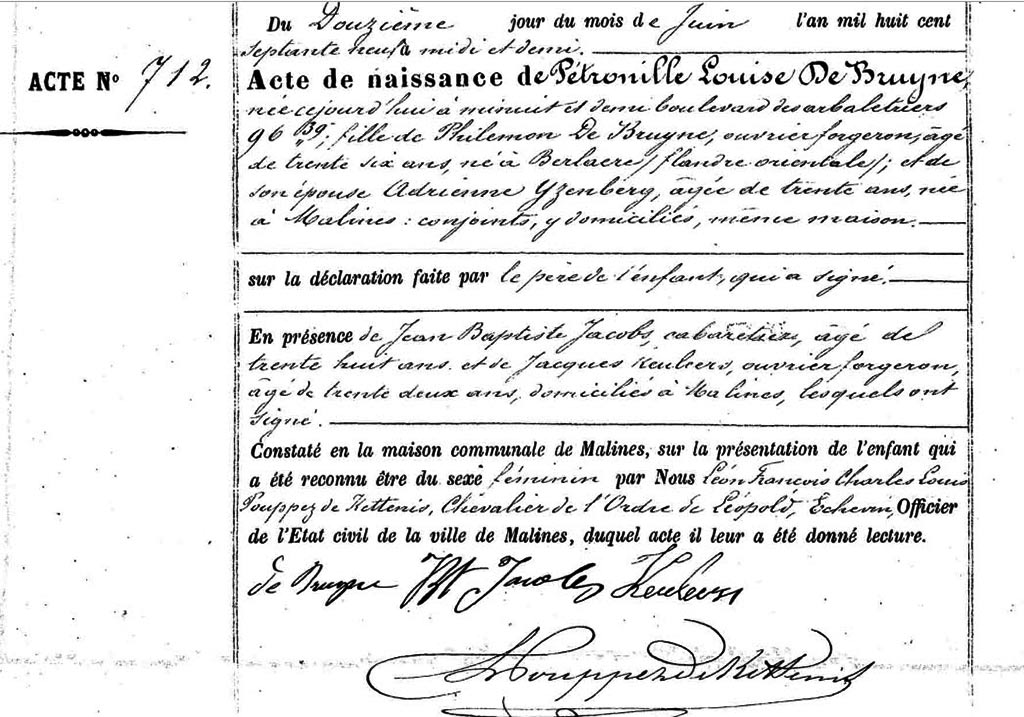 Du Douzième jour du mois de Juin l'an mil huit cent
septante neuf à midi et demi.
ACTE Nº 712.
Acte de naissance de Pétronille Louise De Bruyne,
née cejourd'hui à minuit et demi boulevard des arbaletriers
96 Bg; fille de Philemon De Bruyne, ouvrier forgeron, âgé
de trente six ans, né à Berlaere / flandre orientale /; et de
son épouse Adrienne Yzenberg, âgée de trente ans, née
à Malines : conjoints, y domiciliés, même maison.
sur la déclaration faite par le père de l'enfant, qui a signé.
En présence de Jean Baptiste Jacobs, cabaretier, âgé de
trente huit ans et de Jacques Keulers, ouvrier forgeron,
âgé de trente deux ans, domiciliés à Malines, lesquels ont
signé.
Constaté en la maison communale de Malines, sur la présentation de l'enfant qui
a été reconnu être du sexe féminin par Nous Léon François Charles Louis
Pouppez de Kettenis, Chevalier de l'Ordre de Léopold, Echevin, Officier
de l'Etat civil de la ville de Malines, duquel acte il leur a été donné lecture.
de Bruyne Jacobs
Pouppez de Kettenis